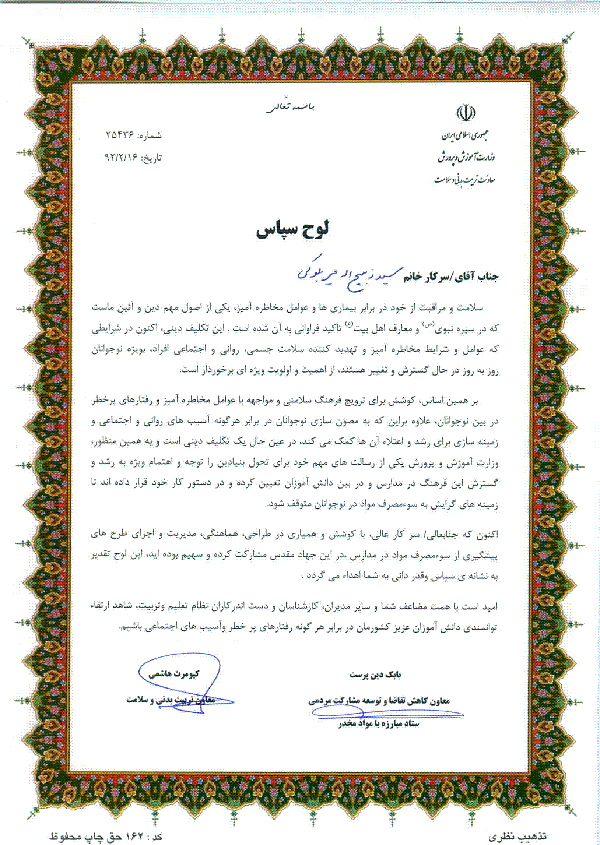 باسمه تعالی
جمهوری اسلامی ایران
وزارت آموزش و پرورش
معاونت تربیت بدنی و سلامت
شماره: ۲۵۴۳۶
تاریخ: ۹۲/۲/۱۶
لوح سپاس
جناب آقای/سرکار خانم سید ذبیح اله میر بلوکی
سلامت و مراقبت از خود در برابر بیماری ها و عوامل مخاطره آمیز، یکی از اصول مهم دین و آئین ماست
که در سیره نبوی(ص) و معارف اهل بیت(ع) تاکید فراوانی به آن شده است . این تکلیف دینی، اکنون در شرایطی
که عوامل و شرایط مخاطره آمیز و تهدید کننده سلامت جسمی، روانی و اجتماعی افراد، بویژه نوجوانان
روز به روز در حال گسترش و تغییر هستند، از اهمیت و اولویت ویژه ای برخوردار است.
بر همین اساس، کوشش برای ترویج فرهنگ سلامتی و مواجهه با عوامل مخاطره آمیز و رفتارهای پرخطر
در بین نوجوانان، علاوه براین که به مصون سازی نوجوانان در برابر هرگونه آسیب های روانی و اجتماعی و
زمینه سازی برای رشد و اعتلاء آن ها کمک می کند، در عین حال یک تکلیف دینی است و به همین منظور،
وزارت آموزش و پرورش یکی از رسالت های مهم خود برای تحول بنیادین را توجه و اهتمام ویژه به رشد و
گسترش این فرهنگ در مدارس و در بین دانش آموزان تعیین کرده و در دستور کار خود قرار داده اند تا
زمینه های گرایش به سوءمصرف مواد در نوجوانان متوقف شود.
اکنون که جنابعالی/ سر کار عالی، با کوشش و همیاری در طراحی، هماهنگی، مدیریت و اجرای طرح های
پیشگیری از سوءمصرف مواد در مدارس ،در این جهاد مقدس مشارکت کرده و سهیم بوده اید، این لوح تقدیر
به نشانه ی سپاس وقدر دانی به شما اهداء می گردد .
امید است با همت مضاعف شما و سایر مدیران، کارشناسان و دست اندرکاران نظام تعلیم وتربیت، شاهد ارتقاء
توانمندی دانش آموزان عزیز کشورمان در برابر هر گونه رفتارهای پر خطر وآسیب های اجتماعی باشیم.
بابک دین پرست
معاون کاهش تقاضا و توسعه مشارکت مردمی
ستاد مبارزه با مواد مخدر
کیومرث هاشمی
معاون تربیت بدنی و سلامت
تذهیب نظری
کد : ۱۶۲ حق چاپ محفوظ